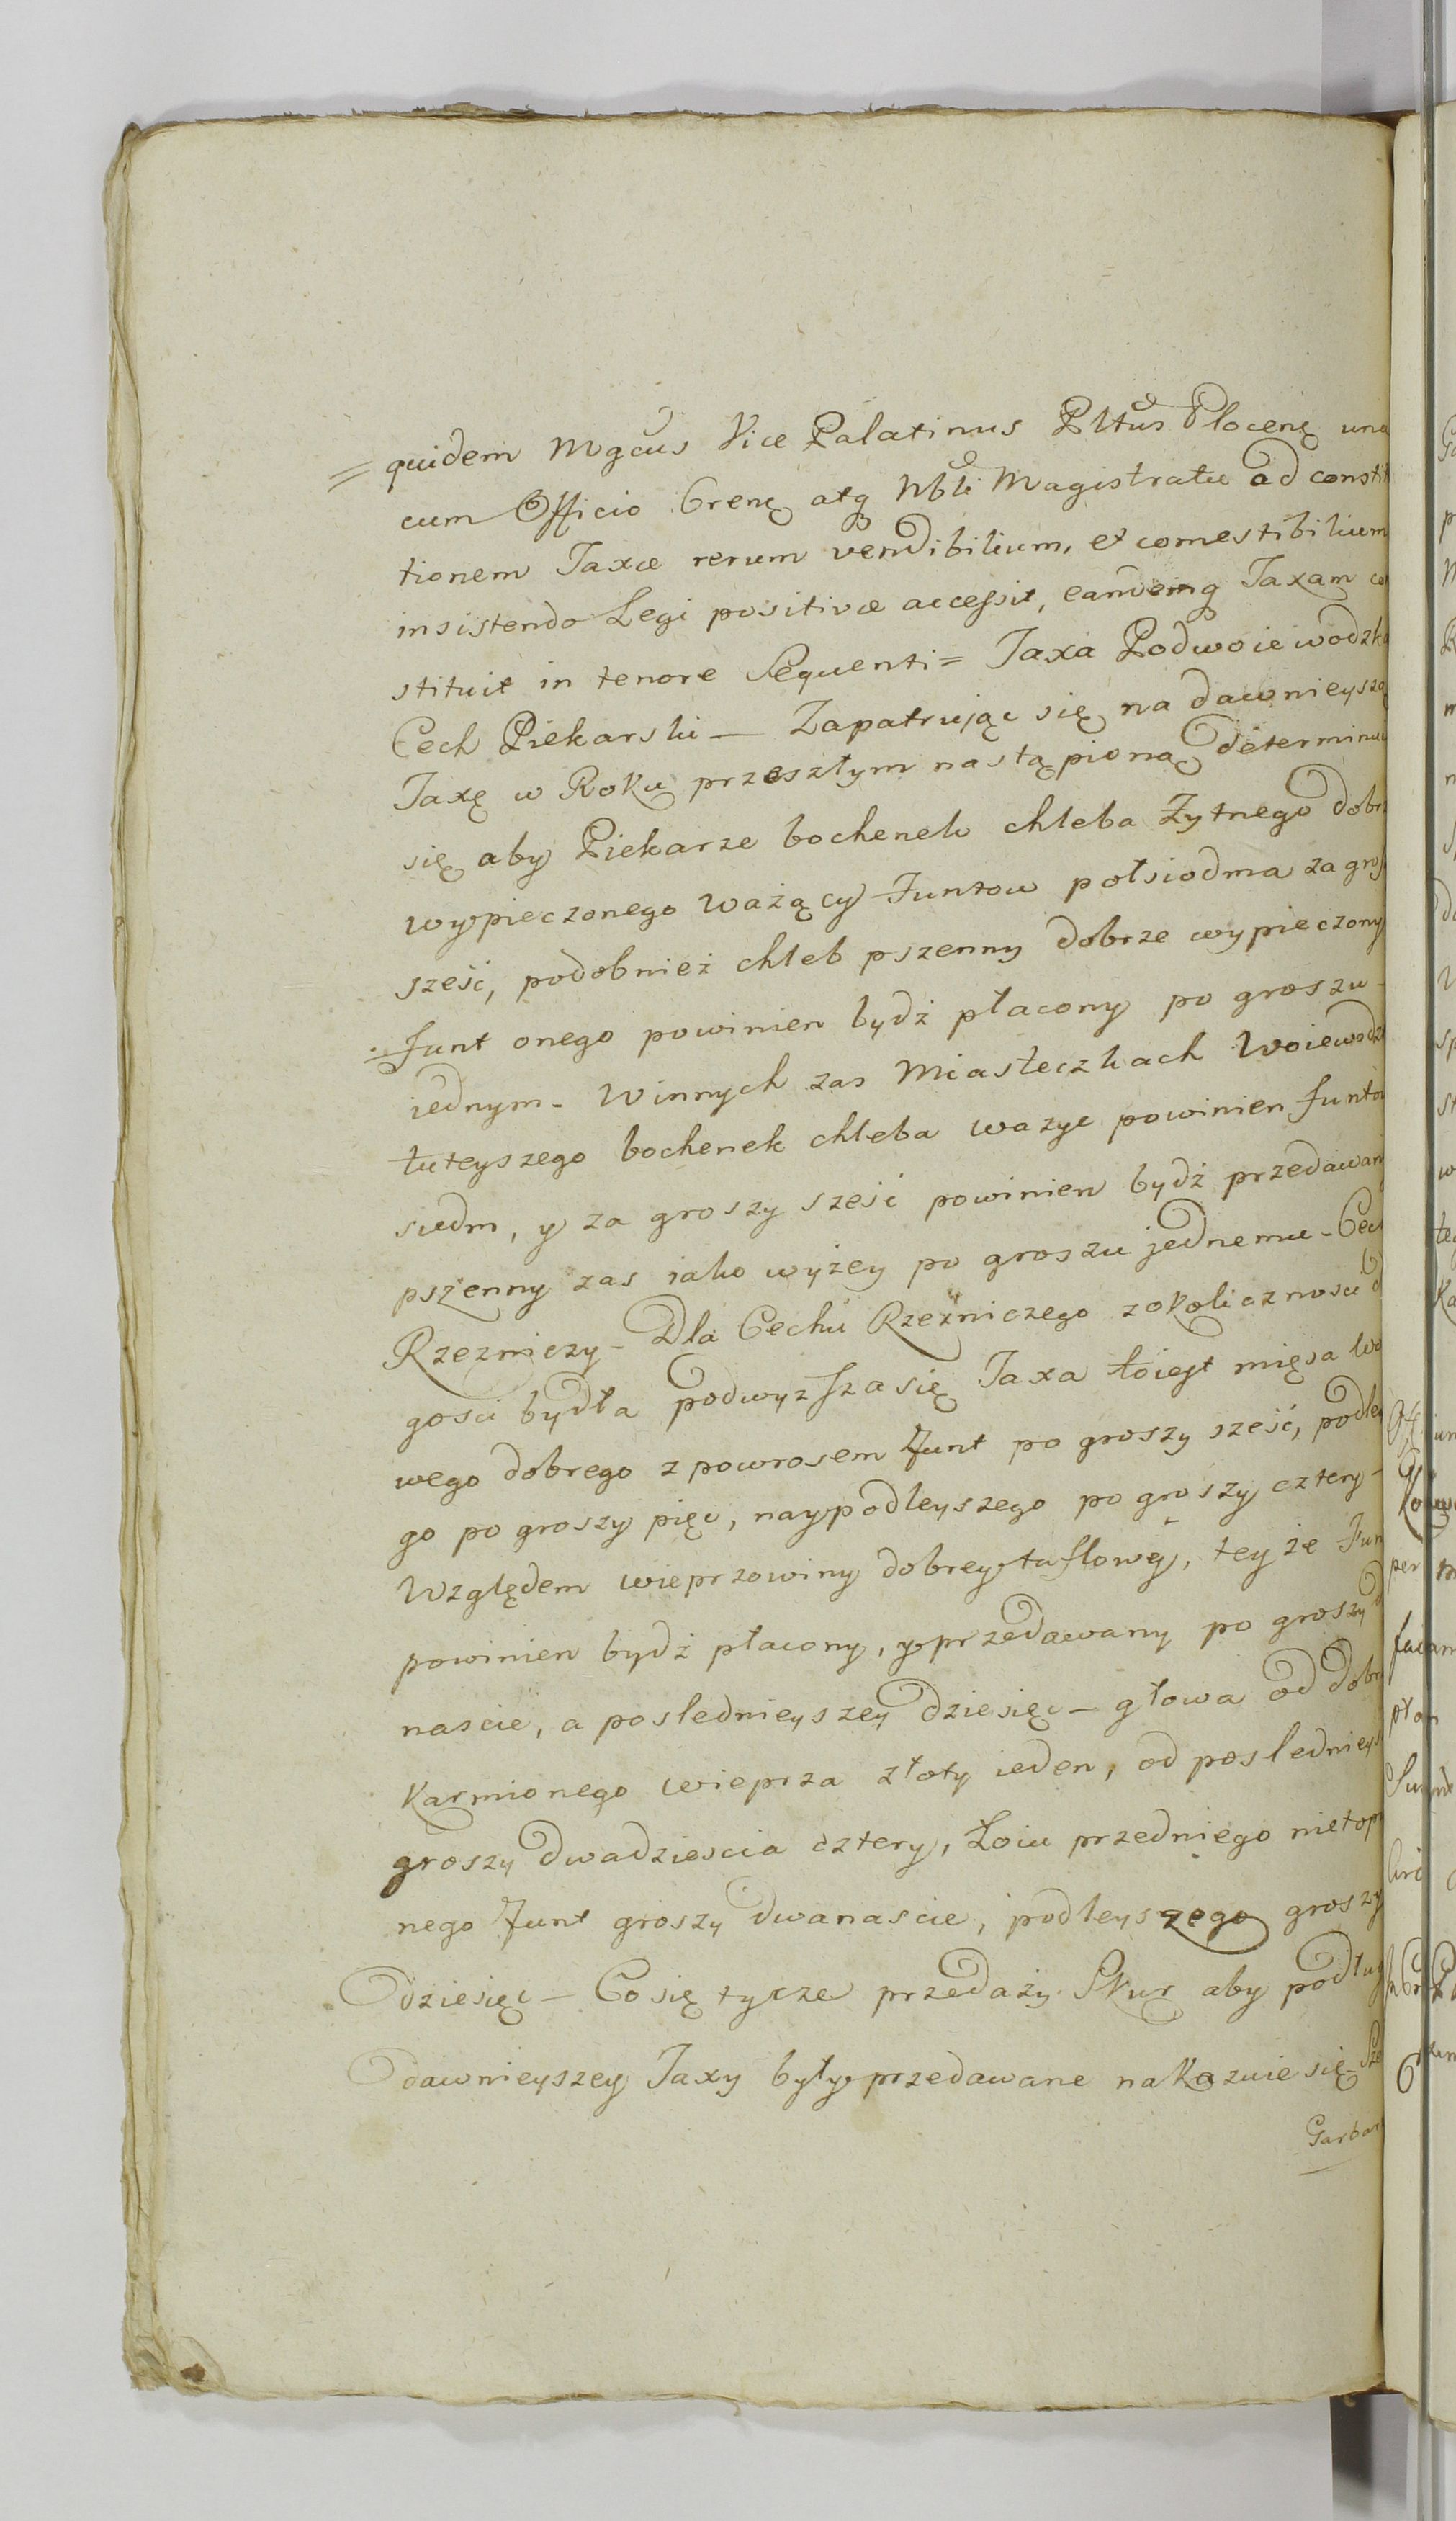 = quidem Mgcus Vice Palatinus Pltus Plocenę una
cum Officio Crenę atq Nbli Magistratu ad constit
tionem Taxæ rerum vendibilium, et comestibilium
insistendo Legi positivæ accessit, eandemq Taxam co
stituit in tenore Sequenti = Taxa Podwoiewodzka
Cech Piekarski — Zapatrując się na dawnieyszą
Taxę w Roku przeszłym nastąpioną determinui
się aby Piekarze bochenek chleba Żytnego dobrz
wypieczonego ważący Funtow połsiodma za gros
sześć, podobnież chleb pszenny dobrze wypieczony
Funt onego powinien bydź płacony po groszu
iednym - Winnych zas Miasteczkach Woiewodz
tuteyszego bochenek chleba wazyc powinien funtow
siedm, y za groszy sześć powinien bydź przedawany
pszenny zas iako wyżey po groszu jednemu - Cech
Rzezniczy - Dla Cechu Rzezniczego zokolicznosci d
gosci bydła podwyzsza się Taxa toiest mięsa wo
wego dobrego z powrosem Funt po groszy sześć, podley
go po groszy pięc, naypodleyszego po groszy cztery -
Względem wieprzowiny dobrey tuflowey, teyże Fun
powinien bydź płacony, y przedawany po groszy d
nascie, a poslednieyszey dziesięc — głowa od dobr
karmionego wieprza złoty ieden, od poslednieys
groszy dwadziescia cztery, Łoiu przedniego nietop
nego Funt groszy dwanascie, podleyszego groszy
dziesięc — Co się tycze przedaży Skur aby podług
dawnieyszey Taxy były przedawane nakazuie się - Sze
Garbar